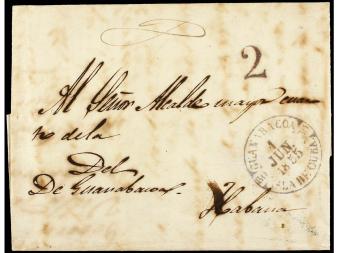 2
Al Señor Alcalde mayor cuar
to de la
Del
De Guanabacoa
Habana
GUANABACOA
1
JUN.
1855
ISLA DE CUBA